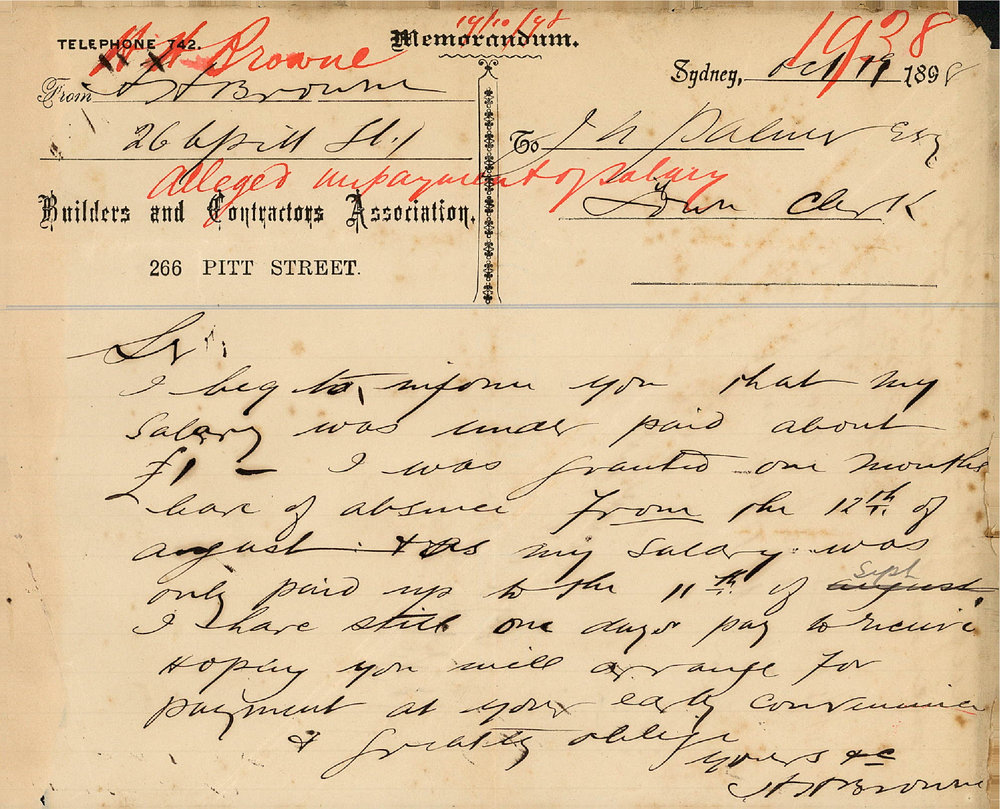 TELEPHONE 742.
19/10/98
Memorandum.
1938
H H Browne
Sydney, Oct 19 1898
From H H Browne
266 Pitt St.
To J N Palmer Esq
Alleged unpayment of salary
Town Clerk
Builders and Contractors Association,
266 PITT STREET.
Sir
I beg to inform you that my
salary was under paid about
£1 – I was granted one months
leave of absence from the 12th of
august & as my salary was
only paid up to the 11th of august Sept
I have still one days pay to receive
Hoping you will arrange for
payment at your early convenience
& greatly oblige
yours &c
H H Browne